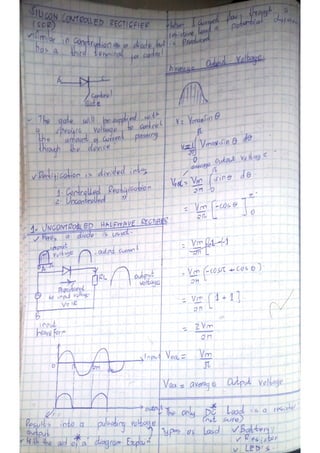 SILICON CONTROLLED RECTIFIER
(SCR)
✓ Similar in construction as a diode, but
has a third terminal for control
Control
Gate
- The gate will be supplied with
a voltage to control
the amount of current passing
though the device
✓ Rectification is divided into;
1. Controlled Rectification
2. Uncontrolled "
1. UNCONTROLLED HALFWAVE RECTIFIER
✓ Here, a diode is used.
input
voltage
output current
RL
output
voltage
V = IR
input
waveform
input
0
output
Results into a pulsating voltage
output
With the aid of a diagram Explain
✓ When I current flow through a
resistive load a potential difference
is Produced
Average Output Voltage
V = Vmax Sin θ
Vmax Sin θ dθ
average output voltage
Vave = Vm/2π ∫ Sin θ dθ
= Vm/2π [-cos θ]
0
= Vm/2π [-1 -1]
= Vm/2π [-cos π + cos 0]
= Vm/2π [1 + 1]
= 2Vm/2π
Vave = Vm/π
Vave = average Output Voltage
The only DC Load is a resistor
(not sure)
Types of Load ✓ Battery,
✓ Resistor
✓ LED's